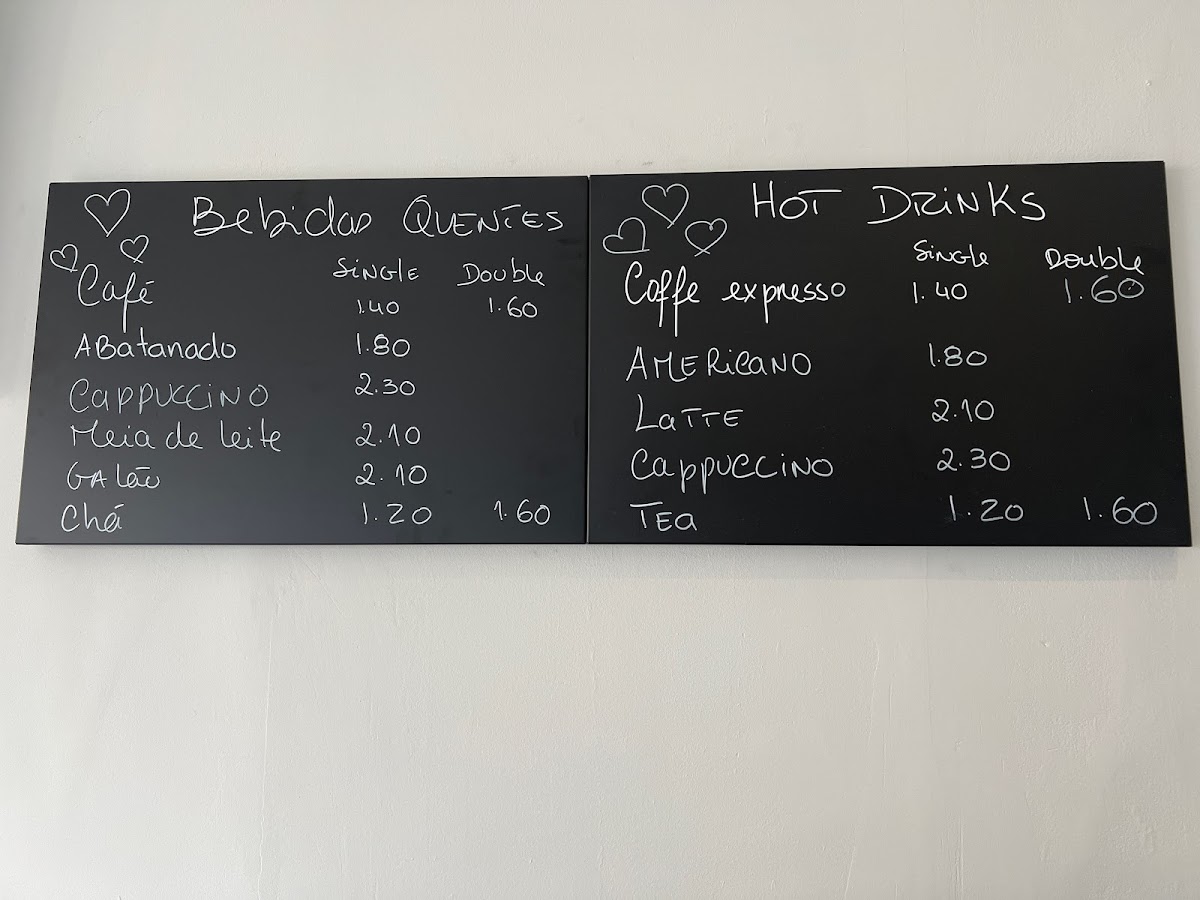 Bebidas QUENTES
SINGLE Double
Café 1.40 1.60
ABatanado 1.80
CAPPUCCINO 2.30
Meia de leite 2.10
GAlão 2.10
Chá 1.20 1.60
HOT DRINKS
SiNGle Double
Coffe expresso 1.40 1.60
AMERicANO 1.80
LaTTE 2.10
CAppUCCINO 2.30
TEa 1.20 1.60